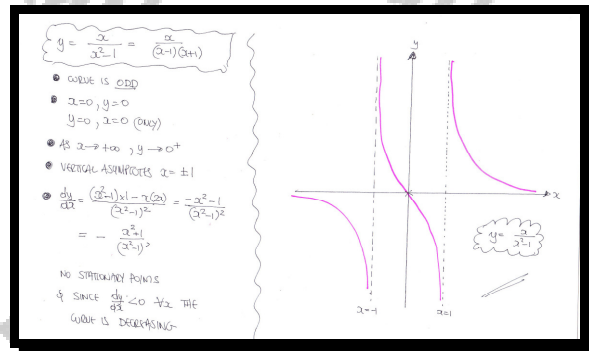 y = x/(x²-1) = x/((x-1)(x+1))
• CURVE IS ODD
• x=0, y=0
y=0, x=0 (ONLY)
• AS x→+∞, y→0⁺
• VERTICAL ASYMPTOTES x= ±1
• dy/dx = ((x²-1)×1 - x(2x))/(x²-1)² = (-x²-1)/(x²-1)²
= - (x²+1)/(x²-1)²,
NO STATIONARY POINTS
& SINCE dy/dx <0 ∀x THE
CURVE IS DECREASING
y
x
y= x/(x²-1)
x=-1
x=1